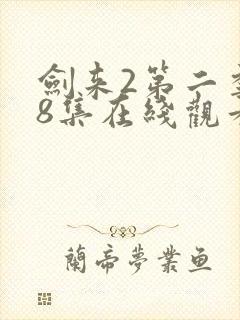 劍来2第二
8集在綫觀
蘭帝夢業鱼